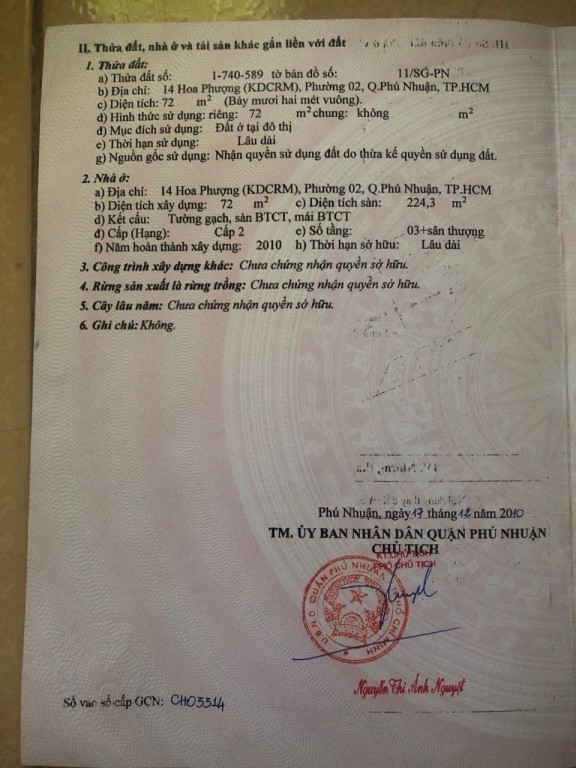 II. Thửa đất, nhà ở và tài sản khác gắn liền với đất
1. Thửa đất:
a) Thửa đất số: 1-740-589 tờ bản đồ số: 11/SG-PN
b) Địa chỉ: 14 Hoa Phượng (KDCRM), Phường 02, Q.Phú Nhuận, TP.HCM
c) Diện tích: 72 m² (Bảy mươi hai mét vuông).
d) Hình thức sử dụng: riêng: 72 m² chung: không m²
đ) Mục đích sử dụng: Đất ở tại đô thị
e) Thời hạn sử dụng: Lâu dài
g) Nguồn gốc sử dụng: Nhận quyền sử dụng đất do thừa kế quyền sử dụng đất.
2. Nhà ở:
a) Địa chỉ: 14 Hoa Phượng (KDCRM), Phường 02, Q.Phú Nhuận, TP.HCM
b) Diện tích xây dựng: 72 m² c) Diện tích sàn: 224,3 m²
d) Kết cấu: Tường gạch, sàn BTCT, mái BTCT
đ) Cấp (Hạng): Cấp 2 e) Số tầng: 03+sân thượng
f) Năm hoàn thành xây dựng: 2010 h) Thời hạn sở hữu: Lâu dài
3. Công trình xây dựng khác: Chưa chứng nhận quyền sở hữu.
4. Rừng sản xuất là rừng trồng: Chưa chứng nhận quyền sở hữu.
5. Cây lâu năm: Chưa chứng nhận quyền sở hữu.
6. Ghi chú: Không.
Phú Nhuận, ngày 17 tháng 12 năm 2010
TM. ỦY BAN NHÂN DÂN QUẬN PHÚ NHUẬN
CHỦ TỊCH
KT.CHỦ TỊCH
PHÓ CHỦ TỊCH
U.B.N.D QUẬN PHÚ NHUẬN
HỒ CHÍ MINH
Nguyễn Thị Ánh Nguyệt
Số vào sổ cấp GCN: CH03314